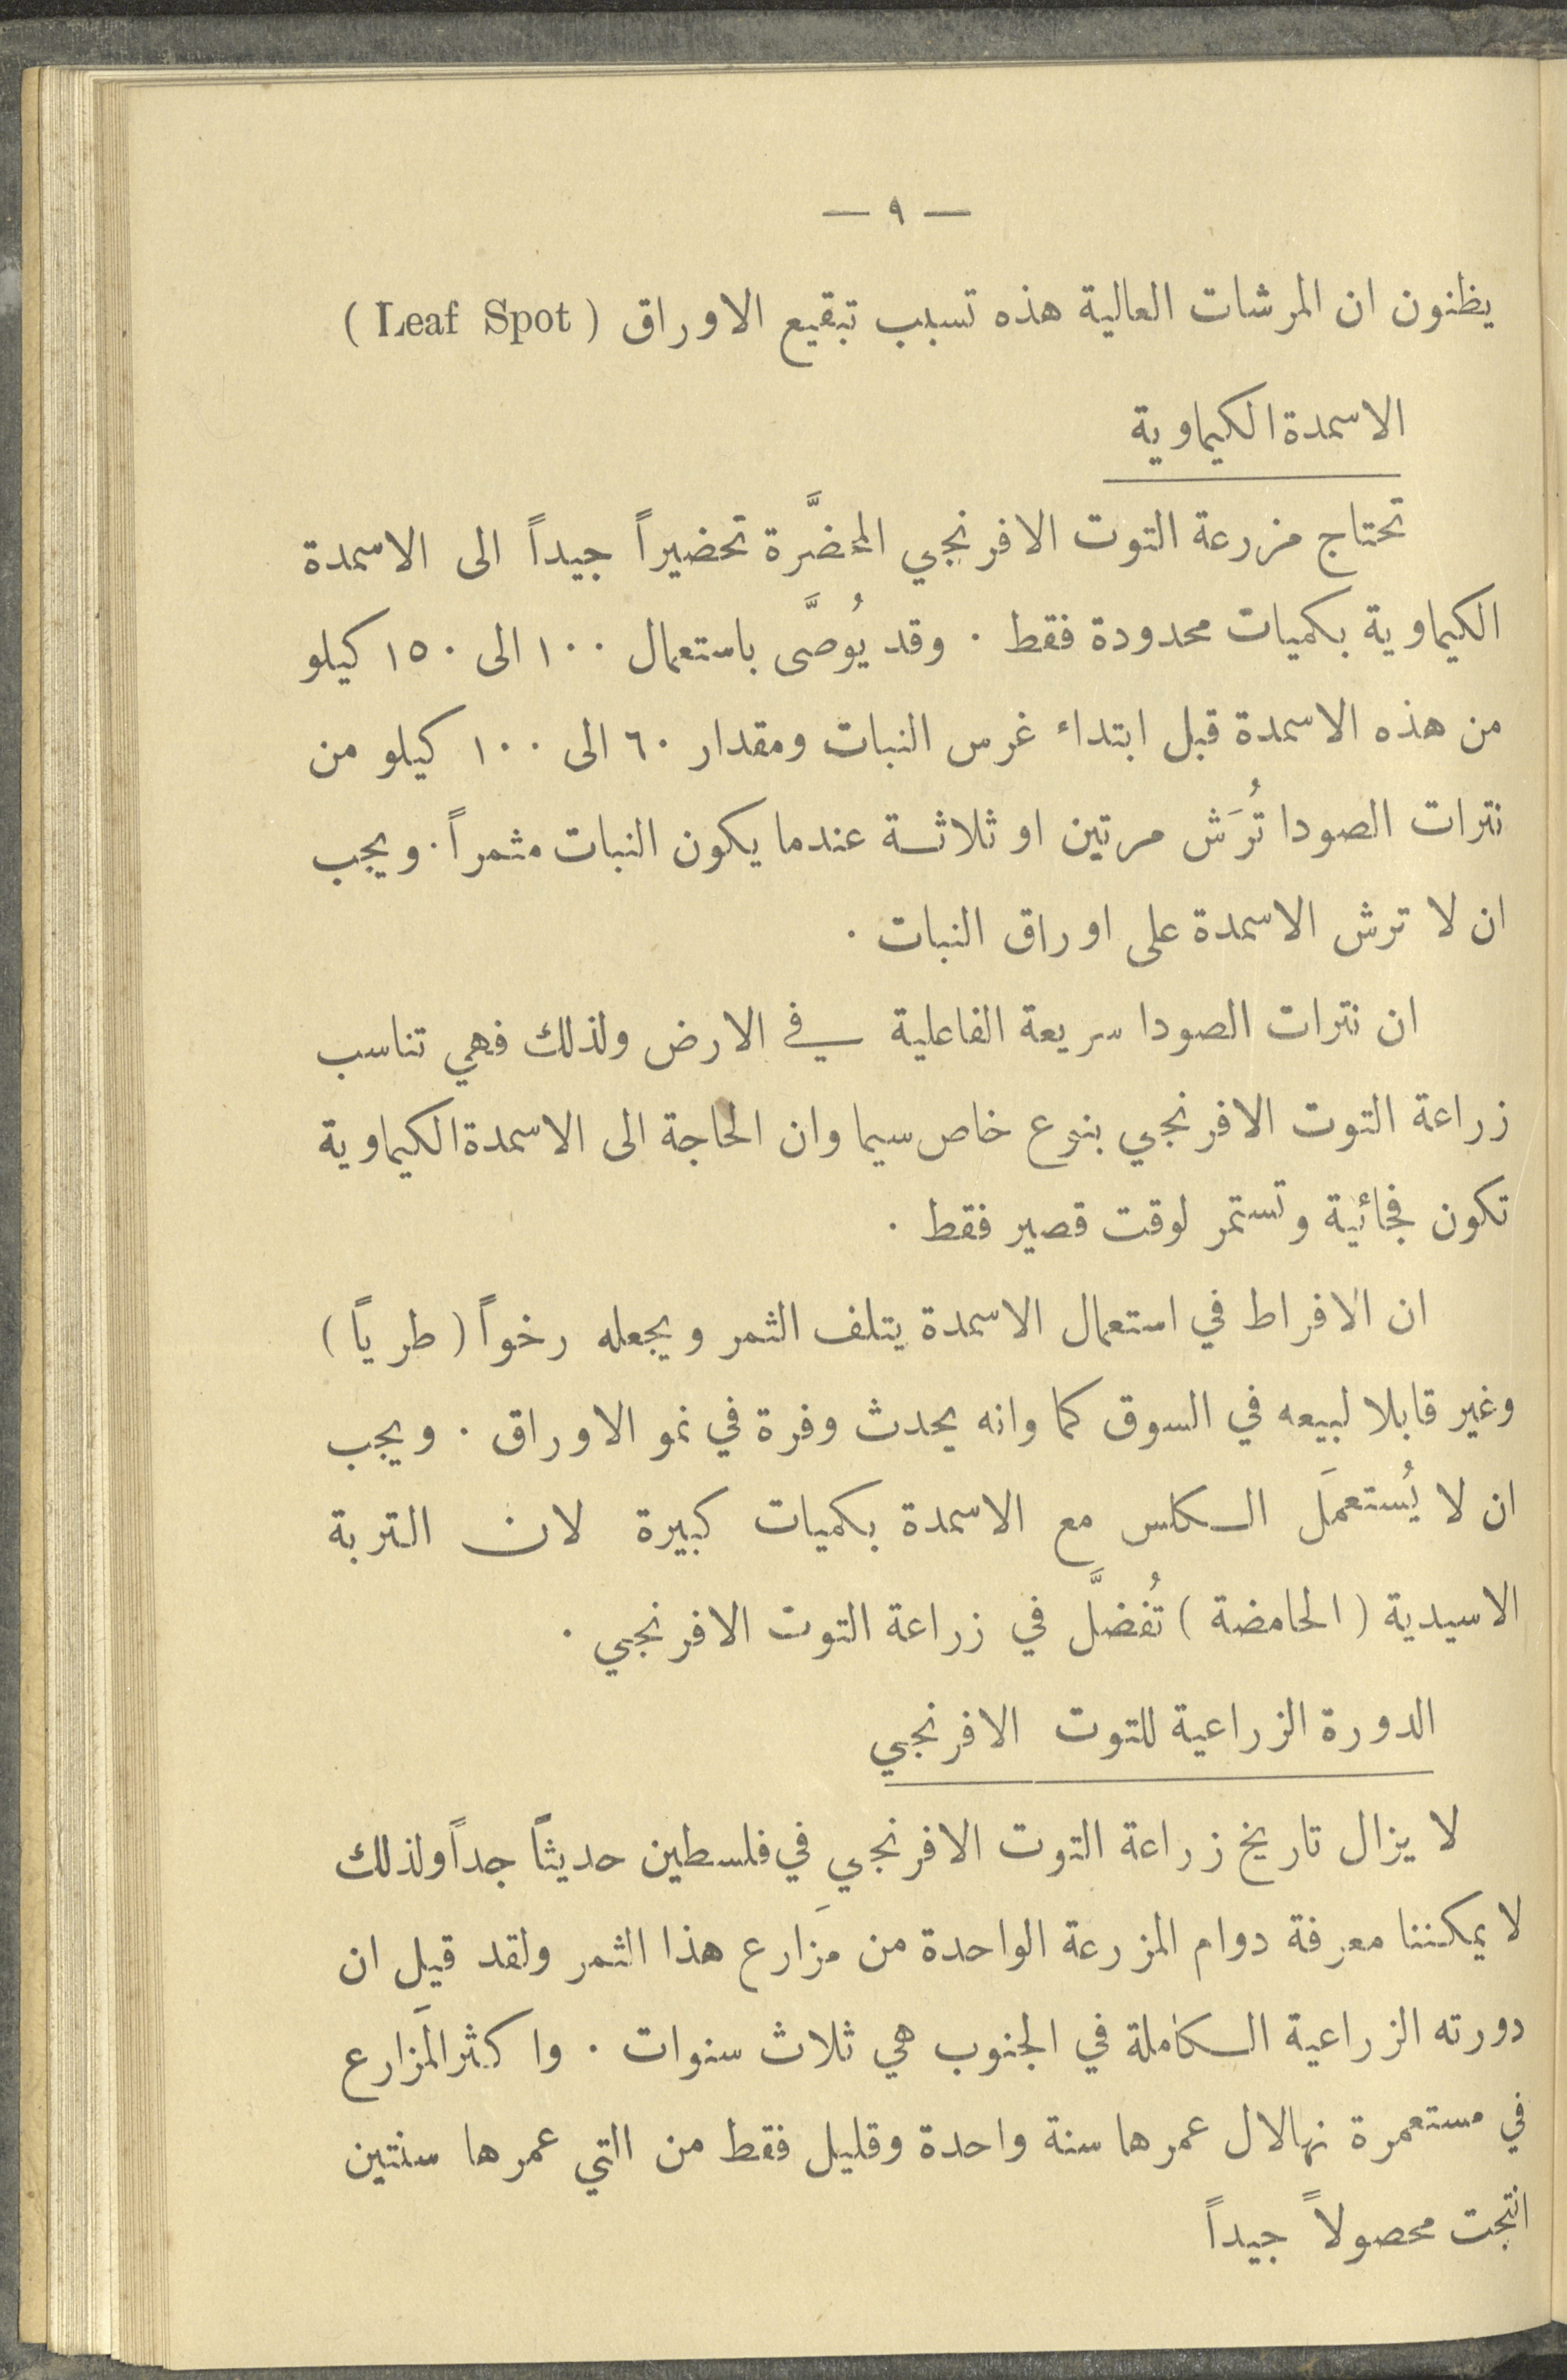 — ٩ —
يظنون ان المرشات العالية هذه تسبب تبقيع الاوراق ( Leaf Spot )
الاسمدة الكيماوية
تحتاج مزرعة التوت الافرنجي المحضَّرة تحضيراً جيداً الى الاسمدة
الكيماوية بكميات محدودة فقط . وقد يُوصَّى باستعمال ١٠٠ الى ١٥٠ كيلو
من هذه الاسمدة قبل ابتداء غرس النبات ومقدار ٦٠ الى ١٠٠ كيلو من
نترات الصودا تُرَش مرتين او ثلاثة عندما يكون النبات مثمراً . ويجب
ان لا ترش الاسمدة على اوراق النبات .
ان نترات الصودا سريعة الفاعلية في الارض ولذلك فهي تناسب
زراعة التوت الافرنجي بنوع خاص سيما وان الحاجة الى الاسمدة الكيماوية
تكون فجائية وتستمر لوقت قصير فقط .
ان الافراط في استعمال الاسمدة يتلف الثمر ويجعله رخواً ( طرياً )
وغير قابلا لبيعه في السوق كما وانه يحدث وفرة في نمو الاوراق . ويجب
ان لا يُستعمَل الكلس مع الاسمدة بكميات كبيرة لان التربة
الاسيدية ( الحامضة ) تُفضَّل في زراعة التوت الافرنجي .
الدورة الزراعية للتوت الافرنجي
لا يزال تاريخ زراعة التوت الافرنجي في فلسطين حديثاً جداً ولذلك
لا يمكننا معرفة دوام المزرعة الواحدة من مَزارع هذا الثمر ولقد قيل ان
دورته الزراعية الكاملة في الجنوب هي ثلاث سنوات . واكثر المَزارع
في مستعمرة نهالال عمرها سنة واحدة وقليل فقط من التي عمرها سنتين
انتجت محصولاً جيداً